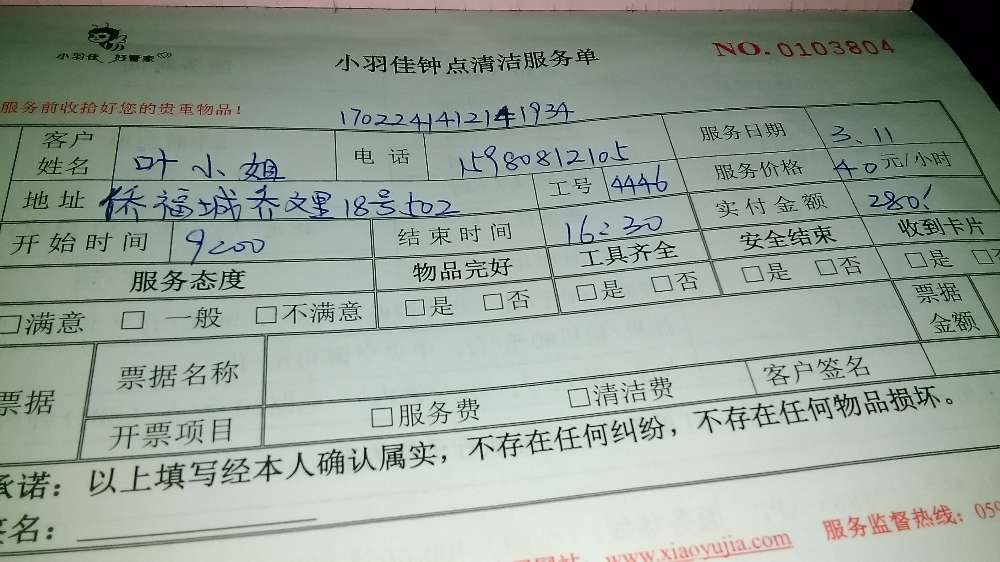 小羽佳 好管家
小羽佳钟点清洁服务单
NO. 0103804
服务前收拾好您的贵重物品!
1702241412141934
客户姓名 叶小姐 电话 15980812105 服务日期 3.11
服务价格 40元/小时
地址 侨福城乔文里18号502 工号 4446 实付金额 280
开始时间 9:00 结束时间 16:30
服务态度 物品完好 工具齐全 安全结束 收到卡片
□满意 □一般 □不满意 □是 □否 □是 □否 □是 □否 □是
票据 票据名称 票据金额
开票项目 □服务费 □清洁费 客户签名
承诺:以上填写经本人确认属实,不存在任何纠纷,不存在任何物品损坏。
签名:
www.xiaoyujia.com 服务监督热线:059